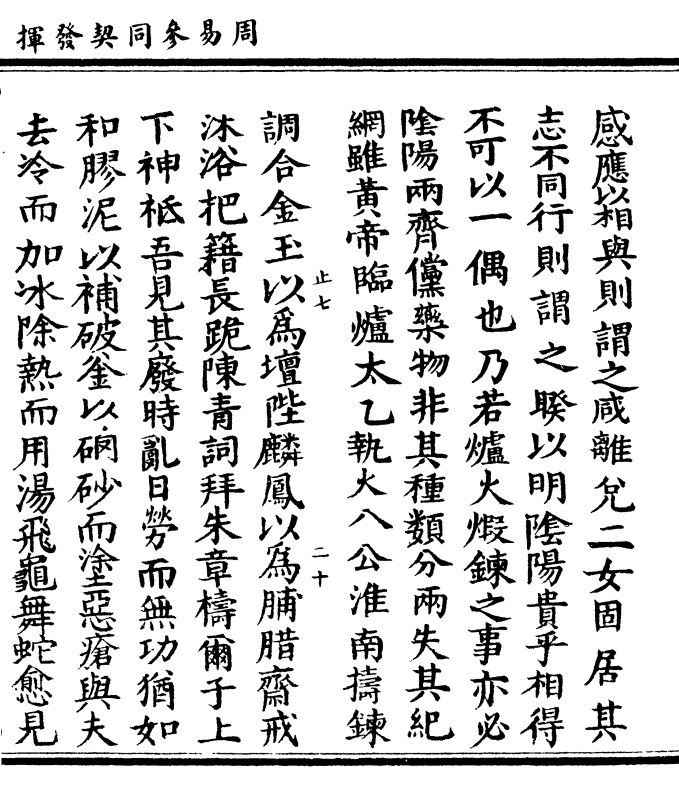 周易參同契發揮
感應以相與則謂之咸離兌二女固居其
志不同行則謂之睽以明陰陽貴乎相得
不可以一偶也乃若爐火煆鍊之事亦必
陰陽兩齊儻藥物非其種類分兩失其紀
網雖黃帝臨爐太乙執火八公淮南擣鍊
止七
二十
調合金玉以爲壇陛麟鳳以爲脯腊齋戒
沐浴把籍長跪陳青詞拜朱章檮爾于上
下神祗吾見其廢時亂日勞而無功猶如
和膠泥以補破釜以硇砂而塗惡瘡與夫
去冷而加冰除熱而用湯飛龜舞蛇愈見